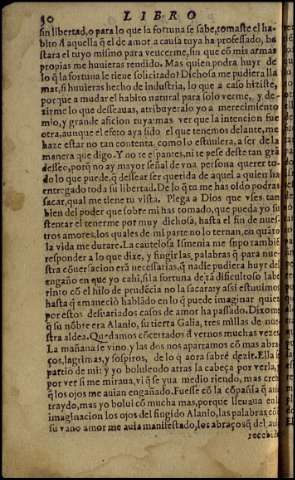 50 LIBRO
sin libertad, o para lo que la fortuna se sabe, tomaste el ha-
bito d̃ aquella q̃ el de amor a causa tuya ha professado, ba
stara el tuyo mismo para vencerme, sin que cõ mis armas
propias me huuieras rendido. Mas quien podra huyr de
lo q̃ la fortuna le tiene solicitado? Dichosa me pudiera lla
mar, si huuieras hecho de industria, lo que a caso hiziste,
porque a mudar el habito natural para solo verme, y de-
zirme lo que desseauas, atribuyeralo yo a merecimiento
mio, y grande aficion tuya: mas ver que la intencion fue
otra, aunque el efeto aya sido el que tenemos delante, me
haze estar no tan contenta, como lo estuuiera, a ser de la
manera que digo. Y no te espantes, ni te pese deste tan grã
desseo, porq̃ no ay mayor señal de vna persona querer to-
do lo que puede, q̃ dessear ser querida de aquel a quien ha
entregado toda su libertad. De lo q̃ tu me has oldo podras
sacar, qual me tiene tu vista. Plega a Dios que vses tan
bien del poder que sobre mi has tomado, que pueda yo su
stentar el tenerme por muy dichosa, hasta el fin de nues-
tros amores, los quales de mi parte no lo ternan, en quãto
la vida me durare. La cautelosa Ismenia me supo tambiẽ
responder a lo que dixe, y fingir las palabras q̃ para nue-
stra cõuersacion erã necessarias, q̃ nadie pudiera huyr del
engaño en que yo cahi, si la fortuna de tã dificultoso labe
rinto cõ el hilo de prudẽcia no la sacara: y assi estuuimos
hasta q̃ amanecio hablãdo en lo q̃ puede imaginar quien
por estos desuariados casos de amor ha passado. Dixome
q̃ su nõbre era Alanio, su tierra Galia, tres millas de nue
stra aldea. Quedamos cõcertados d̃ vernos muchas vezes
La mañana se vino, y las dos nos apartamos cõ mas abra
ços, lagrimas, y sospiros, de lo q̃ aora sabrè dezir. Ella se
partio de mi: y yo boluiendo atras la cabeça por verla, y
por ver si me miraua, vi q̃ se yua medio riendo, mas crehi
q̃ los ojos me auian engañado. Fuesse cõ la cõpañia q̃ auia
traydo, mas yo bolui cõ mucha mas, porque lleuaua en la
imaginacion los ojos del fingido Alanio, las palabras cõ q̃
su vano amor me auia manifestado, los abraços q̃ del auia
recebido